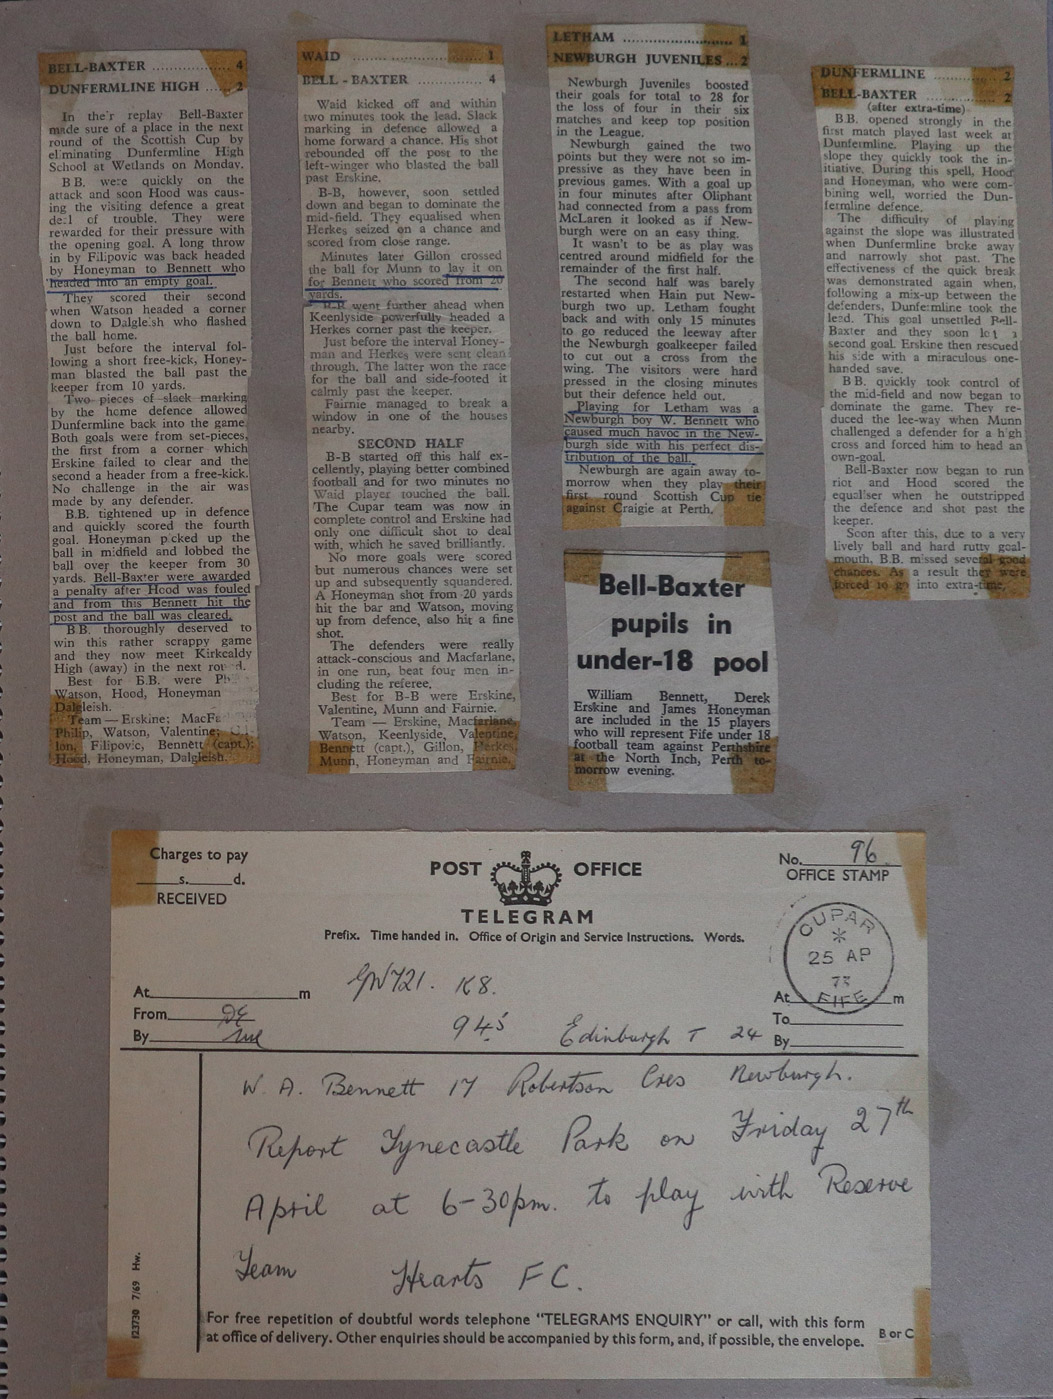 BELL-BAXTER ..................... 4
DUNFERMLINE HIGH ..... 2
In the replay Bell-Baxter
made sure of a place in the next
round of the Scottish Cup by
eliminating Dunfermline High
School at Wetlands on Monday.
B.B. were quickly on the
attack and soon Hood was caus-
ing the visiting defence a great
deal of trouble. They were
rewarded for their pressure with
the opening goal. A long throw
in by Filipovic was back headed
by Honeyman to Bennett who
headed into an empty goal.
They scored their second
when Watson headed a corner
down to Dalgleish who flashed
the ball home.
Just before the interval fol-
lowing a short free-kick, Honey-
man blasted the ball past the
keeper from 10 yards.
Two pieces of slack marking
by the home defence allowed
Dunfermline back into the game.
Both goals were from set-pieces,
the first from a corner which
Erskine failed to clear and the
second a header from a free-kick.
No challenge in the air was
made by any defender.
B.B. tightened up in defence
and quickly scored the fourth
goal. Honeyman picked up the
ball in midfield and lobbed the
ball over the keeper from 30
yards. Bell-Baxter were awarded
a penalty after Hood was fouled
and from this Bennett hit the
post and the ball was cleared.
B.B. thoroughly deserved to
win this rather scrappy game
and they now meet Kirkcaldy
High (away) in the next ro d.
Best for B.B. were Ph
Watson, Hood, Honeyman
Dalgleish.
Team — Erskine; MacFa
Philip, Watson, Valentine; Gil-
lon, Filipovic, Bennett (capt.);
Hood, Honeyman, Dalgleish.
WAID ................................ 1
BELL - BAXTER ................ 4
Waid kicked off and within
two minutes took the lead. Slack
marking in defence allowed a
home forward a chance. His shot
rebounded off the post to the
left-winger who blasted the ball
past Erskine.
B-B, however, soon settled
down and began to dominate the
mid-field. They equalised when
Herkes seized on a chance and
scored from close range.
Minutes later Gillon crossed
the ball for Munn to lay it on
for Bennett who scored from 20
yards.
B-B went further ahead when
Keenlyside powerfully headed a
Herkes corner past the keeper.
Just before the interval Honey-
man and Herkes were sent clean
through. The latter won the race
for the ball and side-footed it
calmly past the keeper.
Fairnie managed to break a
window in one of the houses
nearby.
SECOND HALF
B-B started off this half ex-
cellently, playing better combined
football and for two minutes no
Waid player touched the ball.
The Cupar team was now in
complete control and Erskine had
only one difficult shot to deal
with, which he saved brilliantly.
No more goals were scored
but numerous chances were set
up and subsequently squandered.
A Honeyman shot from 20 yards
hit the bar and Watson, moving
up from defence, also hit a fine
shot.
The defenders were really
attack-conscious and Macfarlane,
in one run, beat four men in-
cluding the referee.
Best for B-B were Erskine,
Valentine, Munn and Fairnie.
Team — Erskine, Macfarlane,
Watson, Keenlyside, Valentine,
Bennett (capt.), Gillon, Herkes,
Munn, Honeyman and Fairnie.
LETHAM ........................... 1
NEWBURGH JUVENILES ... 2
Newburgh Juveniles boosted
their goals for total to 28 for
the loss of four in their six
matches and keep top position
in the League.
Newburgh gained the two
points but they were not so im-
pressive as they have been in
previous games. With a goal up
in four minutes after Oliphant
had connected from a pass from
McLaren it looked as if New-
burgh were on an easy thing.
It wasn't to be as play was
centred around midfield for the
remainder of the first half.
The second half was barely
restarted when Hain put New-
burgh two up. Letham fought
back and with only 15 minutes
to go reduced the leeway after
the Newburgh goalkeeper failed
to cut out a cross from the
wing. The visitors were hard
pressed in the closing minutes
but their defence held out.
Playing for Letham was a
Newburgh boy W. Bennett who
caused much havoc in the New-
burgh side with his perfect dis-
tribution of the ball.
Newburgh are again away to-
morrow when they play their
first round Scottish Cup tie
against Craigie at Perth.
Bell-Baxter
pupils in
under-18 pool
William Bennett, Derek
Erskine and James Honeyman
are included in the 15 players
who will represent Fife under 18
football team against Perthshire
at the North Inch, Perth to-
morrow evening.
DUNFERMLINE ................ 2
BELL-BAXTER ................. 2
(after extra-time)
B.B. opened strongly in the
first match played last week at
Dunfermline. Playing up the
slope they quickly took the in-
itiative. During this spell, Hood
and Honeyman, who were com-
bining well, worried the Dun-
fermline defence.
The difficulty of playing
against the slope was illustrated
when Dunfermline broke away
and narrowly shot past. The
effectiveness of the quick break
was demonstrated again when,
following a mix-up between the
defenders, Dunfermline took the
lead. This goal unsettled Bell-
Baxter and they soon lost a
second goal. Erskine then rescued
his side with a miraculous one-
handed save.
B.B. quickly took control of
the mid-field and now began to
dominate the game. They re-
duced the lee-way when Munn
challenged a defender for a high
cross and forced him to head an
own-goal.
Bell-Baxter now began to run
riot and Hood scored the
equaliser when he outstripped
the defence and shot past the
keeper.
Soon after this, due to a very
lively ball and hard rutty goal-
mouth, B.B. missed several good
chances. As a result they were
forced to go into extra-time.
Charges to pay
____s.____d.
RECEIVED
POST OFFICE
TELEGRAM
Prefix. Time handed in. Office of Origin and Service Instructions. Words.
No. 96
OFFICE STAMP
CUPAR
25 AP
73
FIFE
At____m
From
By
GW721. K8.
945 Edinburgh T 24
At____m
To
By
W. A. Bennett 17 Robertson Cres Newburgh.
Report Tynecastle Park on Friday 27th
April at 6-30pm. to play with Reserve
Team Hearts FC.
123730 7/69 Hw.
For free repetition of doubtful words telephone "TELEGRAMS ENQUIRY" or call, with this form
at office of delivery. Other enquiries should be accompanied by this form, and, if possible, the envelope.
B or C